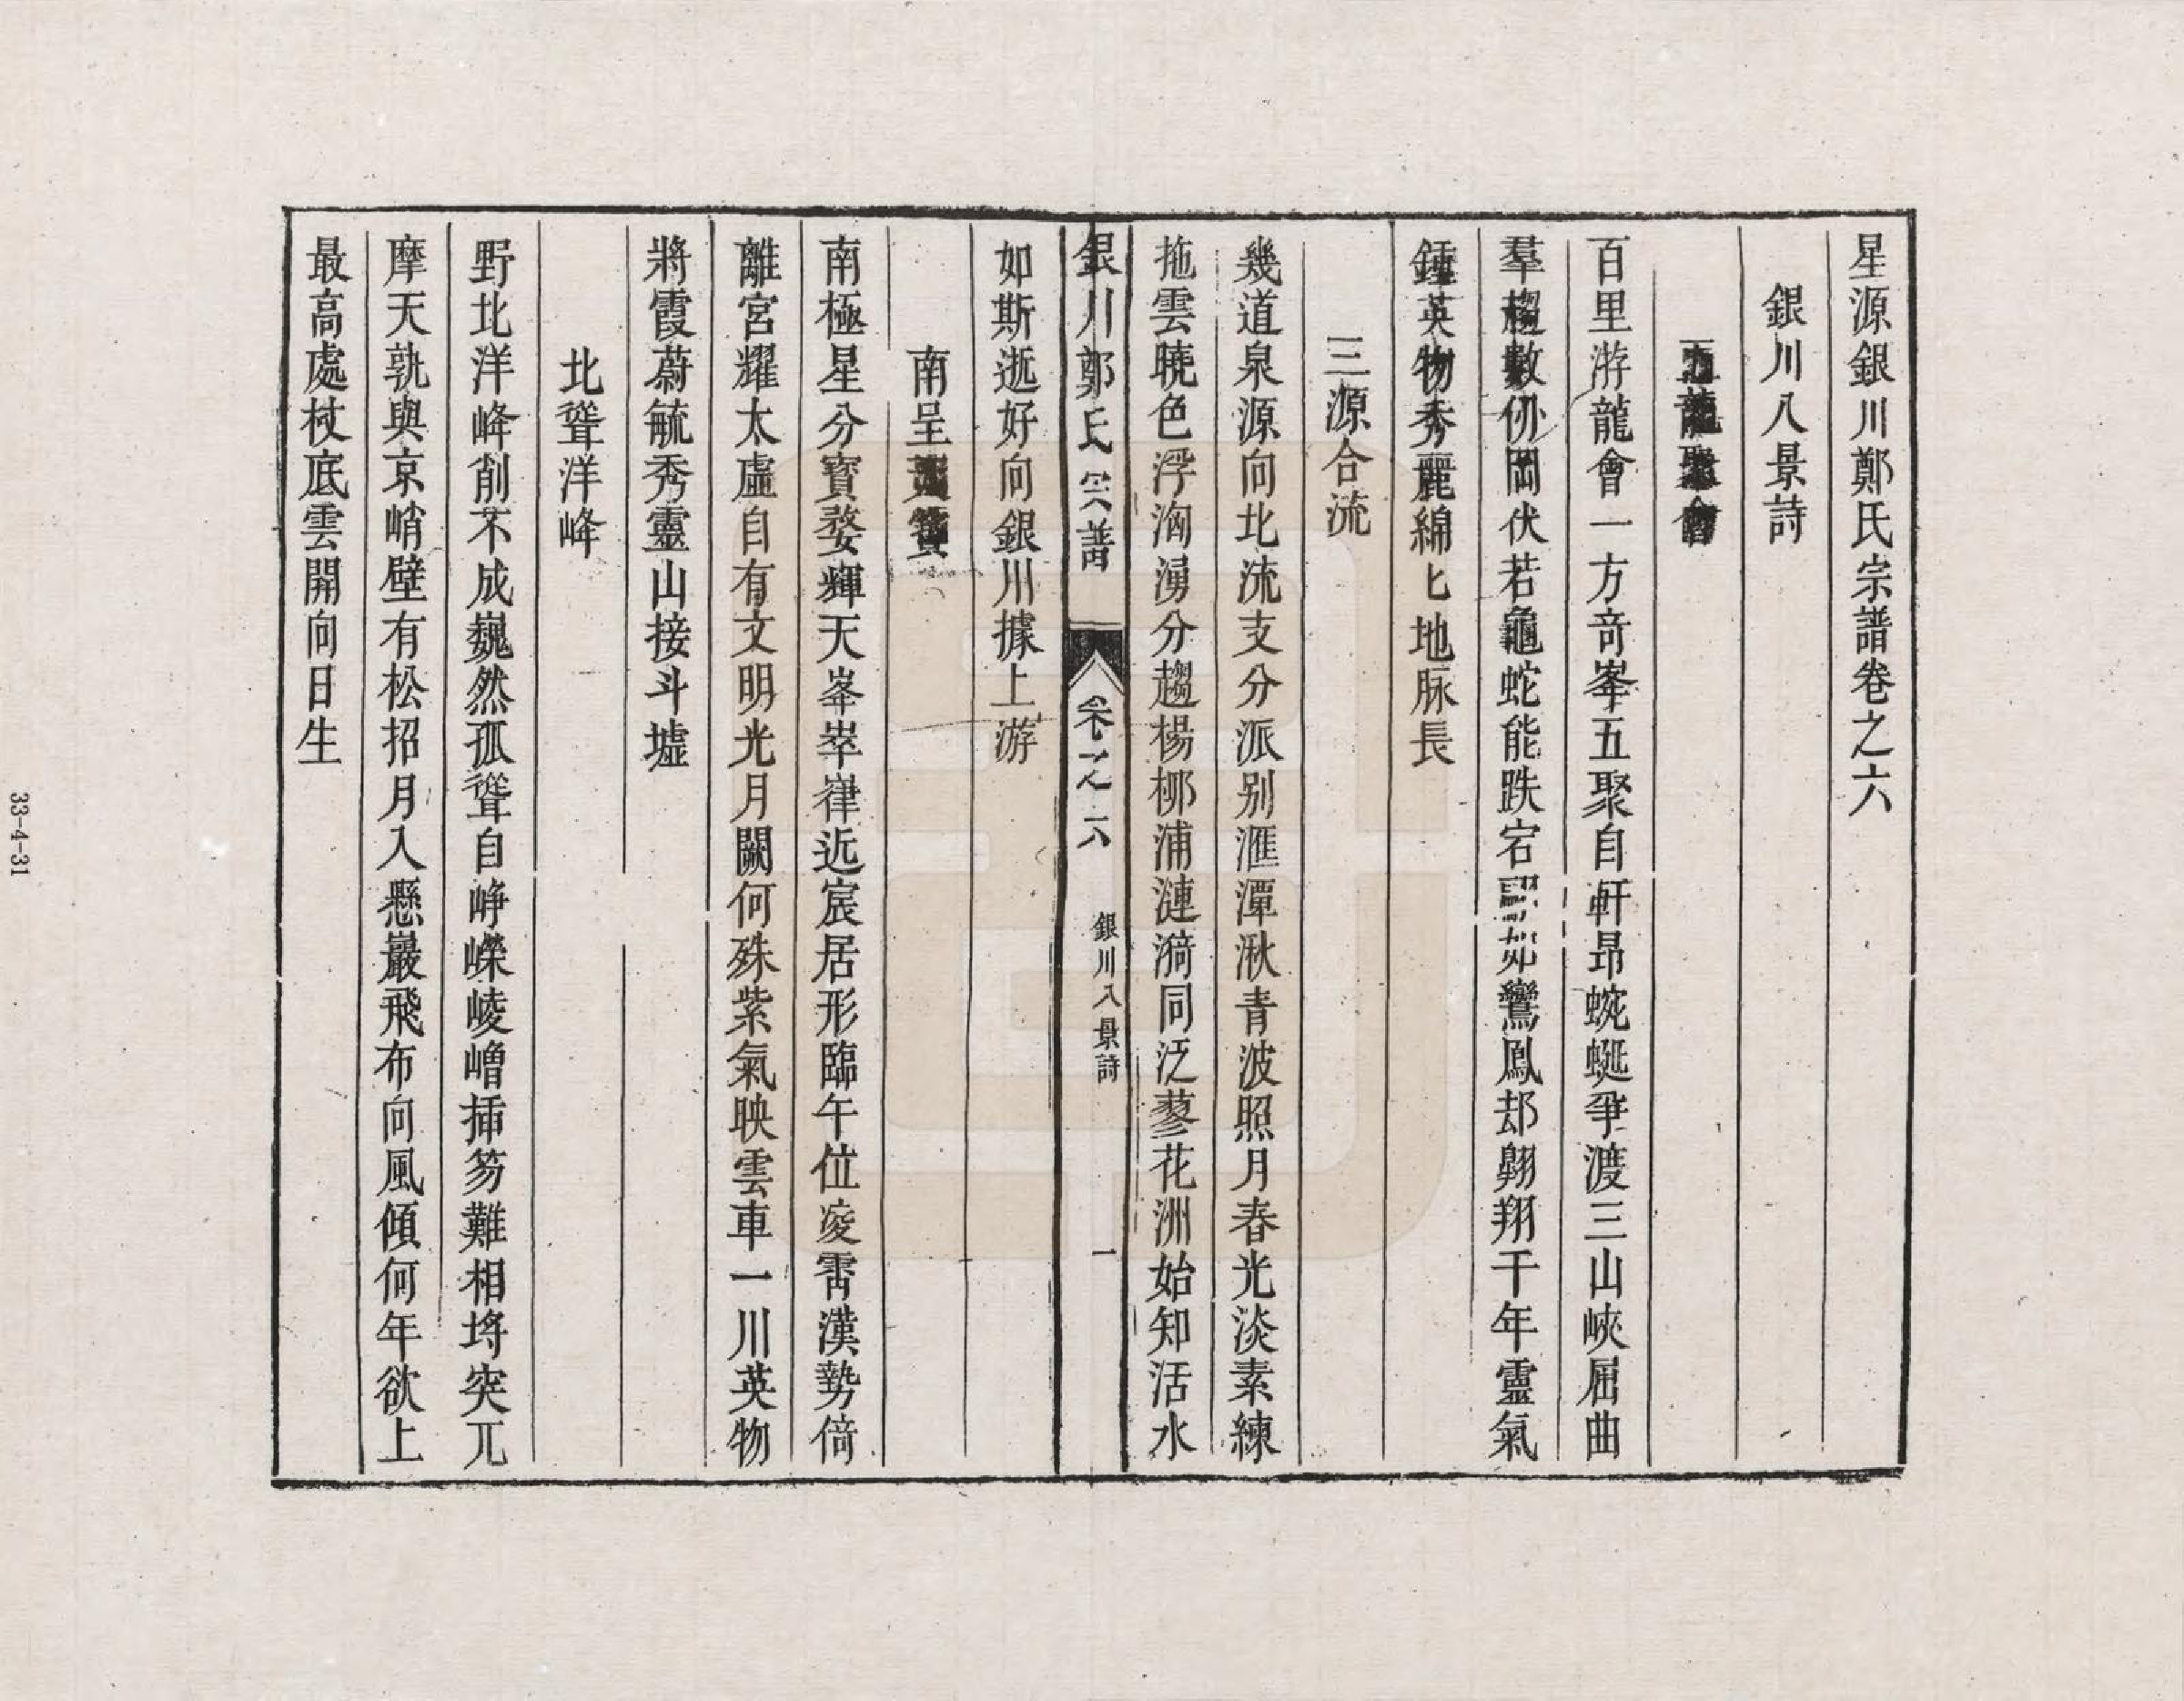 星源銀川鄭氏宗譜卷之六
銀川八景詩
五龍聚會
百里游龍會一方奇峯五聚自軒昻蜿蜒爭渡三山峽屈曲
羣趨數仞岡伏若龜蛇能跌宕如鸞鳳却翺翔千年靈氣
鍾英物秀麗綿匕地脉長
三源合流
幾道泉源向北流支分派别滙潭湫青波照月春光淡素練
拖雲曉色浮洶湧分趨楊柳浦漣漪同泛蓼花洲始知活水
銀川鄭氏宗譜 卷之六 銀川八景詩 一
如斯逝好向銀川據上游
南呈寳
南極星分寶婺輝天峯崒嵂近宸居形臨午位凌霄漢勢倚
離宮耀太虛自有文明光月闕何殊紫氣映雲車一川英物
將霞蔚毓秀靈山接斗墟
北聳洋峰
野北洋峰削不成巍然孤聳自崢嶸崚嶒揷笏難相埒突兀
摩天孰與京峭壁有松招月入懸巖飛布向風傾何年欲上
最高處杖底雲開向日生
33-4-31